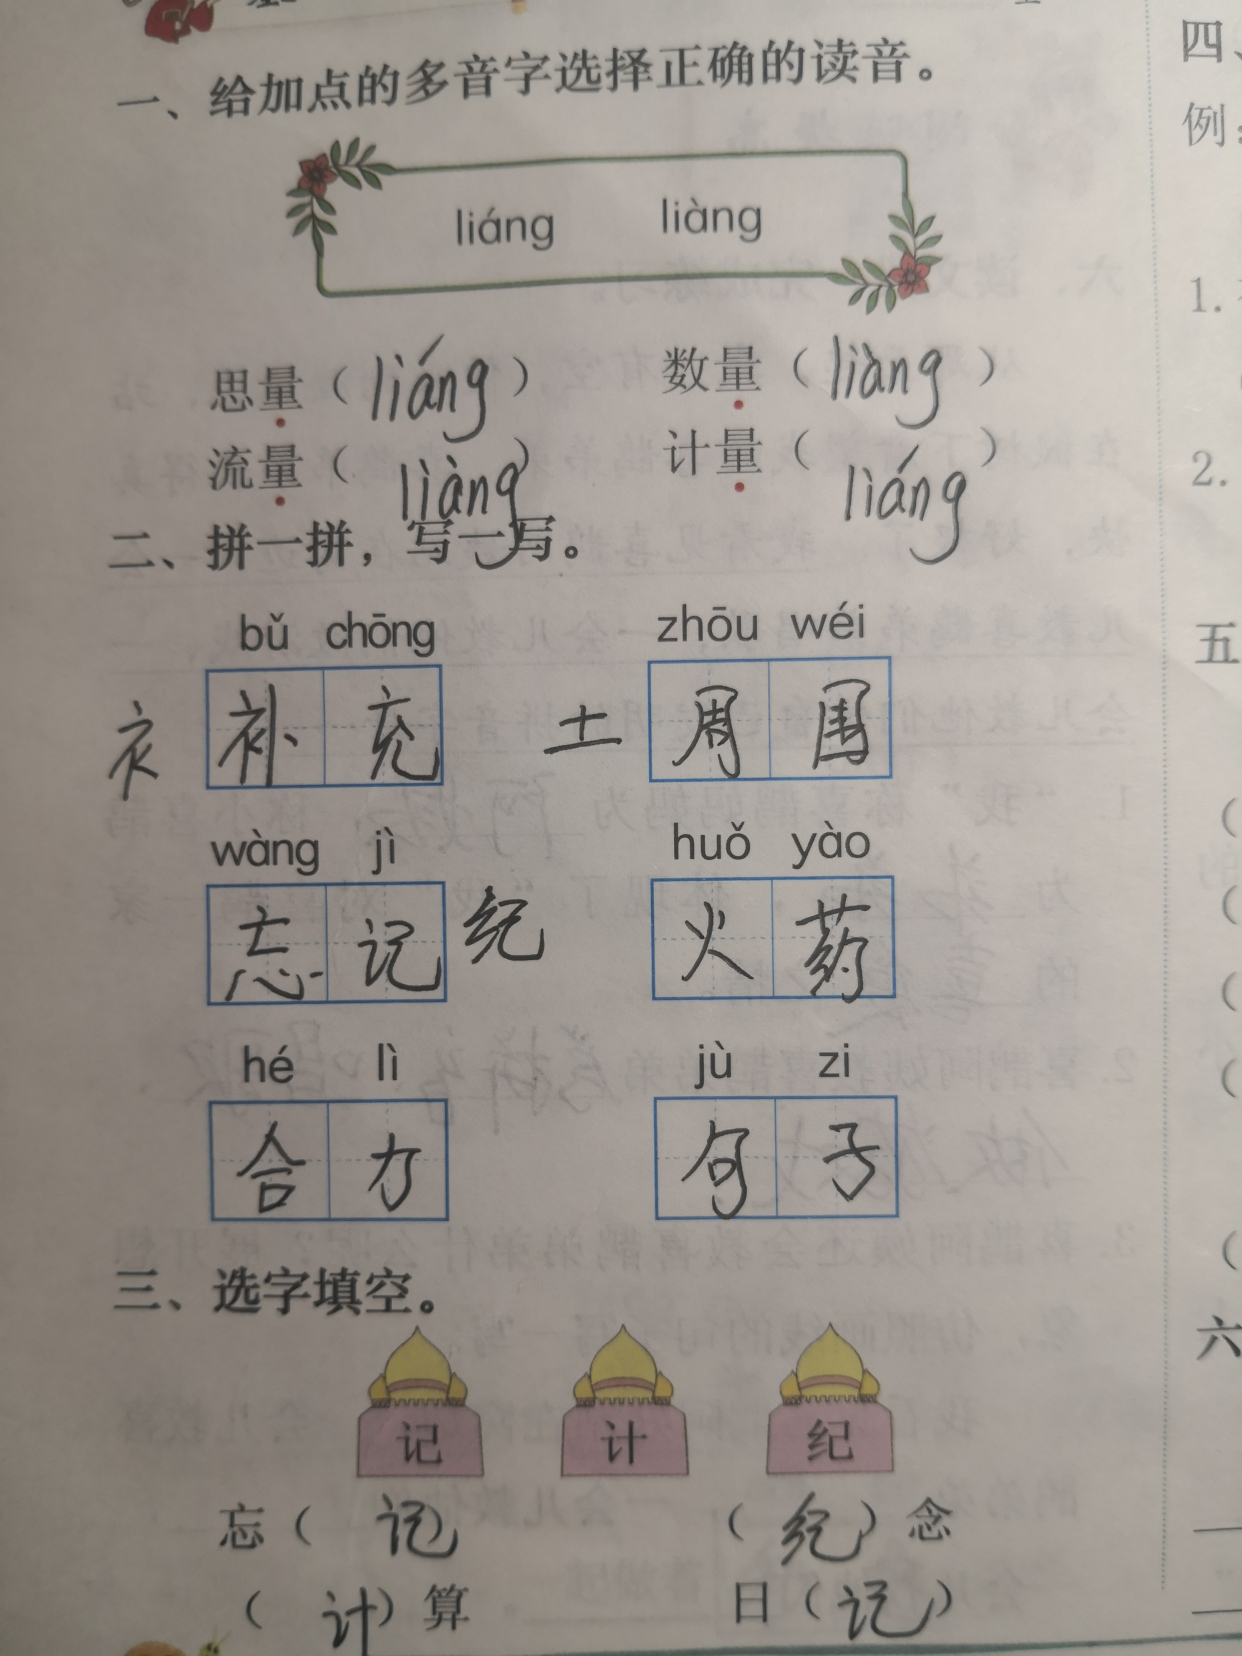 一、给加点的多音字选择正确的读音。
liáng liàng
思量（liáng） 数量（liàng）
流量（liàng） 计量（liáng）
二、拼一拼，写一写。
bǔ chōng zhōu wéi
衤 补充 土 周围
wàng jì huǒ yào
忘记 纪 火药
hé lì jù zi
合力 句子
三、选字填空。
记 计 纪
忘（记 （纪）念
（计）算 日（记）
四、
例：
1.
2.
五
六